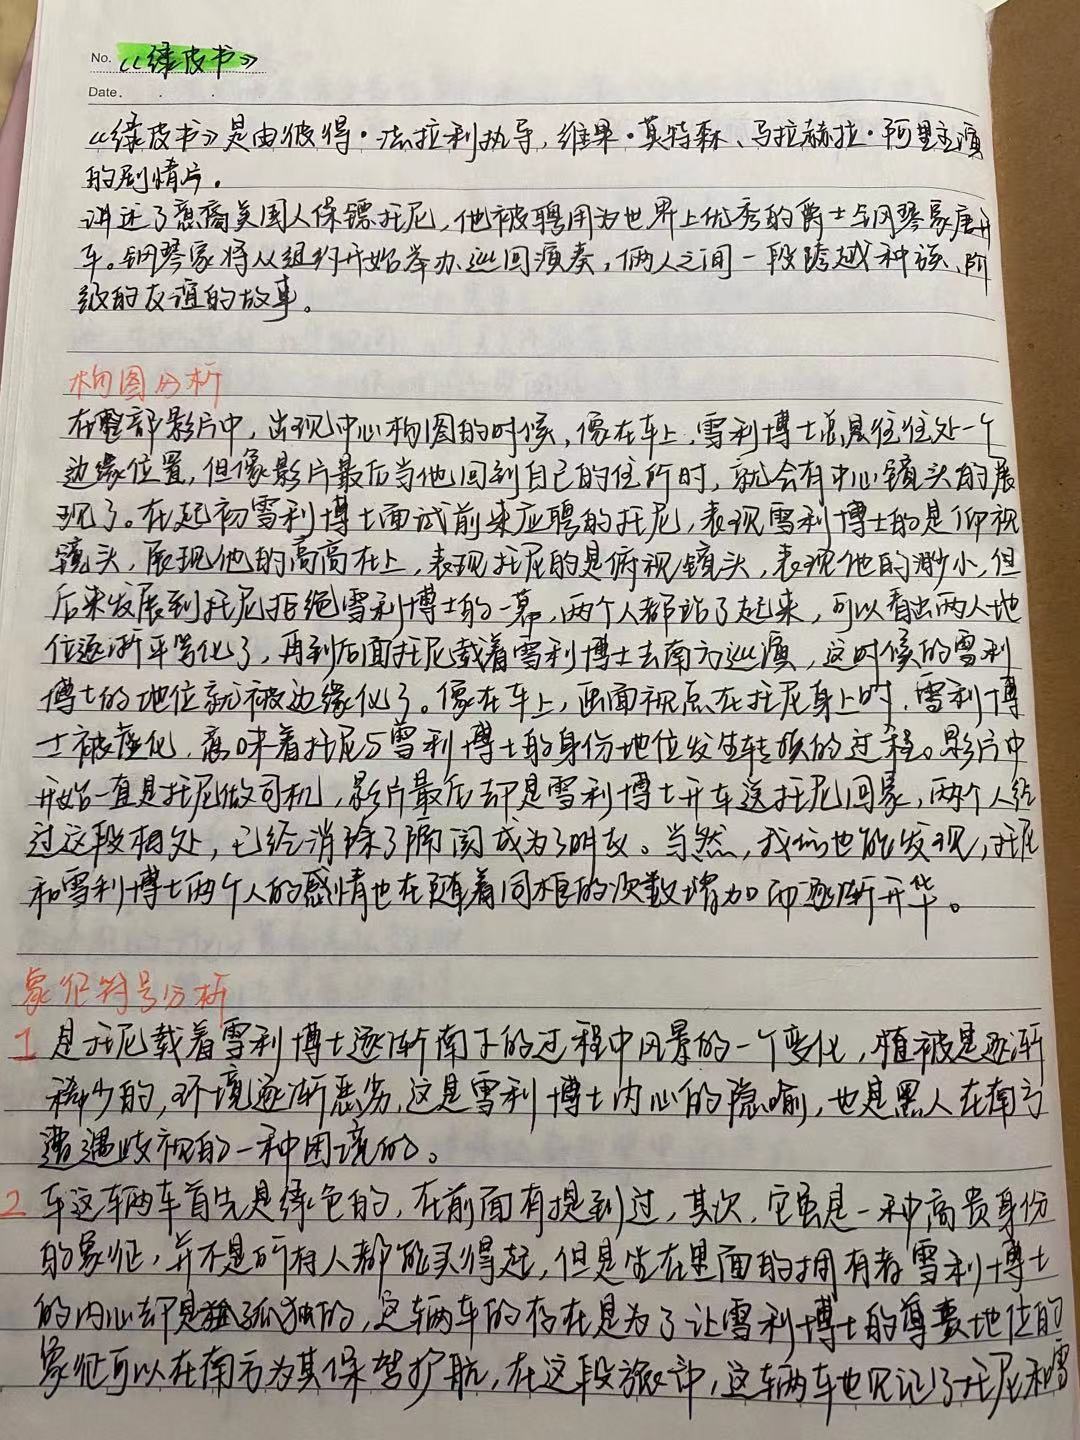 No. 《绿皮书》
Date.
《绿皮书》是由彼得·法拉利执导,维果·莫特森、马拉赫拉·阿里主演
的剧情片。
讲述了意裔美国人保镖托尼,他被聘用为世界上优秀的爵士乐钢琴家唐开
车。钢琴家将从纽约开始举办巡回演奏,俩人之间一段跨越种族、阶
级的友谊的故事。
构图分析
在整部影片中,出现中心构图的时候,像在车上,雪利博士总是往往处一个
边缘位置,但像影片最后当他回到自己的住所时,就会有中心镜头的展
现了。在起初雪利博士面试前来应聘的托尼,表现雪利博士的是仰视
镜头,展现他的高高在上,表现托尼的是俯视镜头,表现他的渺小,但
后来发展到托尼拒绝雪利博士的一幕,两个人都站了起来,可以看出两人地
位逐渐平等化了,再到后面托尼载着雪利博士去南方巡演,这时候的雪利
博士的地位就被边缘化了。像在车上,画面视点在托尼身上时,雪利博
士被虚化,意味着托尼与雪利博士的身份地位发生转换的过程。影片中
开始一直是托尼做司机,影片最后却是雪利博士开车送托尼回家,两个人经
过这段相处,已经消除了隔阂成为了朋友。当然,我们也能发现,托尼
和雪利博士两个人的感情也在随着同框的次数增加而逐渐升华。
象征符号分析
1 是托尼载着雪利博士逐渐南下的过程中风景的一个变化,植被是逐渐
稀少的,环境逐渐恶劣,这是雪利博士内心的隐喻,也是黑人在南方
遭遇歧视的一种困境的。
2 车这辆车首先是绿色的,在前面有提到过,其次,它虽是一种高贵身份
的象征,并不是所有人都能买得起,但是坐在里面的拥有者雪利博士
的内心却是孤独的,这辆车的存在是为了让雪利博士的尊贵地位的
象征可以在南方为其保驾护航,在这段旅许,这辆车也见证了托尼和雪